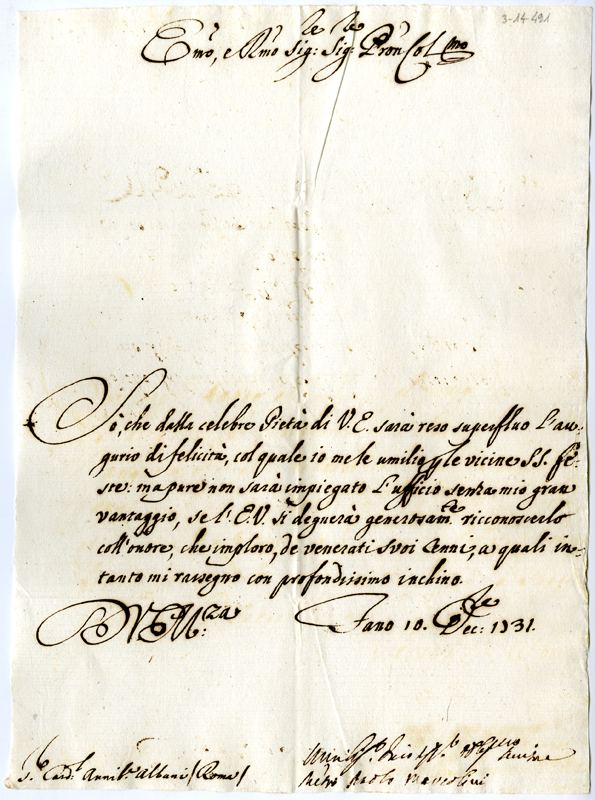 3-14-491
Emo, e Rmo Sig:re Sig:re Pron Colmo
Sò, che dalla celebre Pietà di V. E. sarà reso superfluo l'au-
gurio di felicità, col quale io me le umilio p le vicine SS. fe-
ste: ma pure non sarà impiegato l'ufficio senza mio gran
vantaggio, se l'E.V. si degnerà generosamte. ricconoscerlo
coll'onore, che imploro, de venerati svoi Cenni, a quali in-
tanto mi rassegno con profondissimo inchino.
Fano 10. Dec:re 1731.
Sr. Card.l Annile Albani (Roma)
Pietro Paolo Marcolini